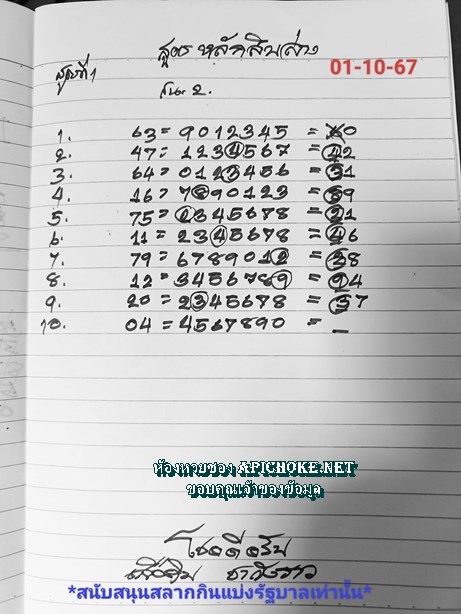 สูตร หลักสิบล่าง
01-10-67
สูตรที่ 1
1. 63 = 9012345 = X0
2. 47 = 1234567 = 42
3. 64 = 0123456 = 31
4. 16 = 7890123 = 89
5. 75 = 2345678 = 21
6. 11 = 2345678 = 46
7. 79 = 6789012 = 28
8. 12 = 3456789 = 94
9. 20 = 2345678 = 37
10. 04 = 4567890 = _
ห้องหวยซอง APICHOKE.NET
ขอบคุณเจ้าของข้อมูล
โชคดีครับ
*สนับสนุนสลากกินแบ่งรัฐบาลเท่านั้น*